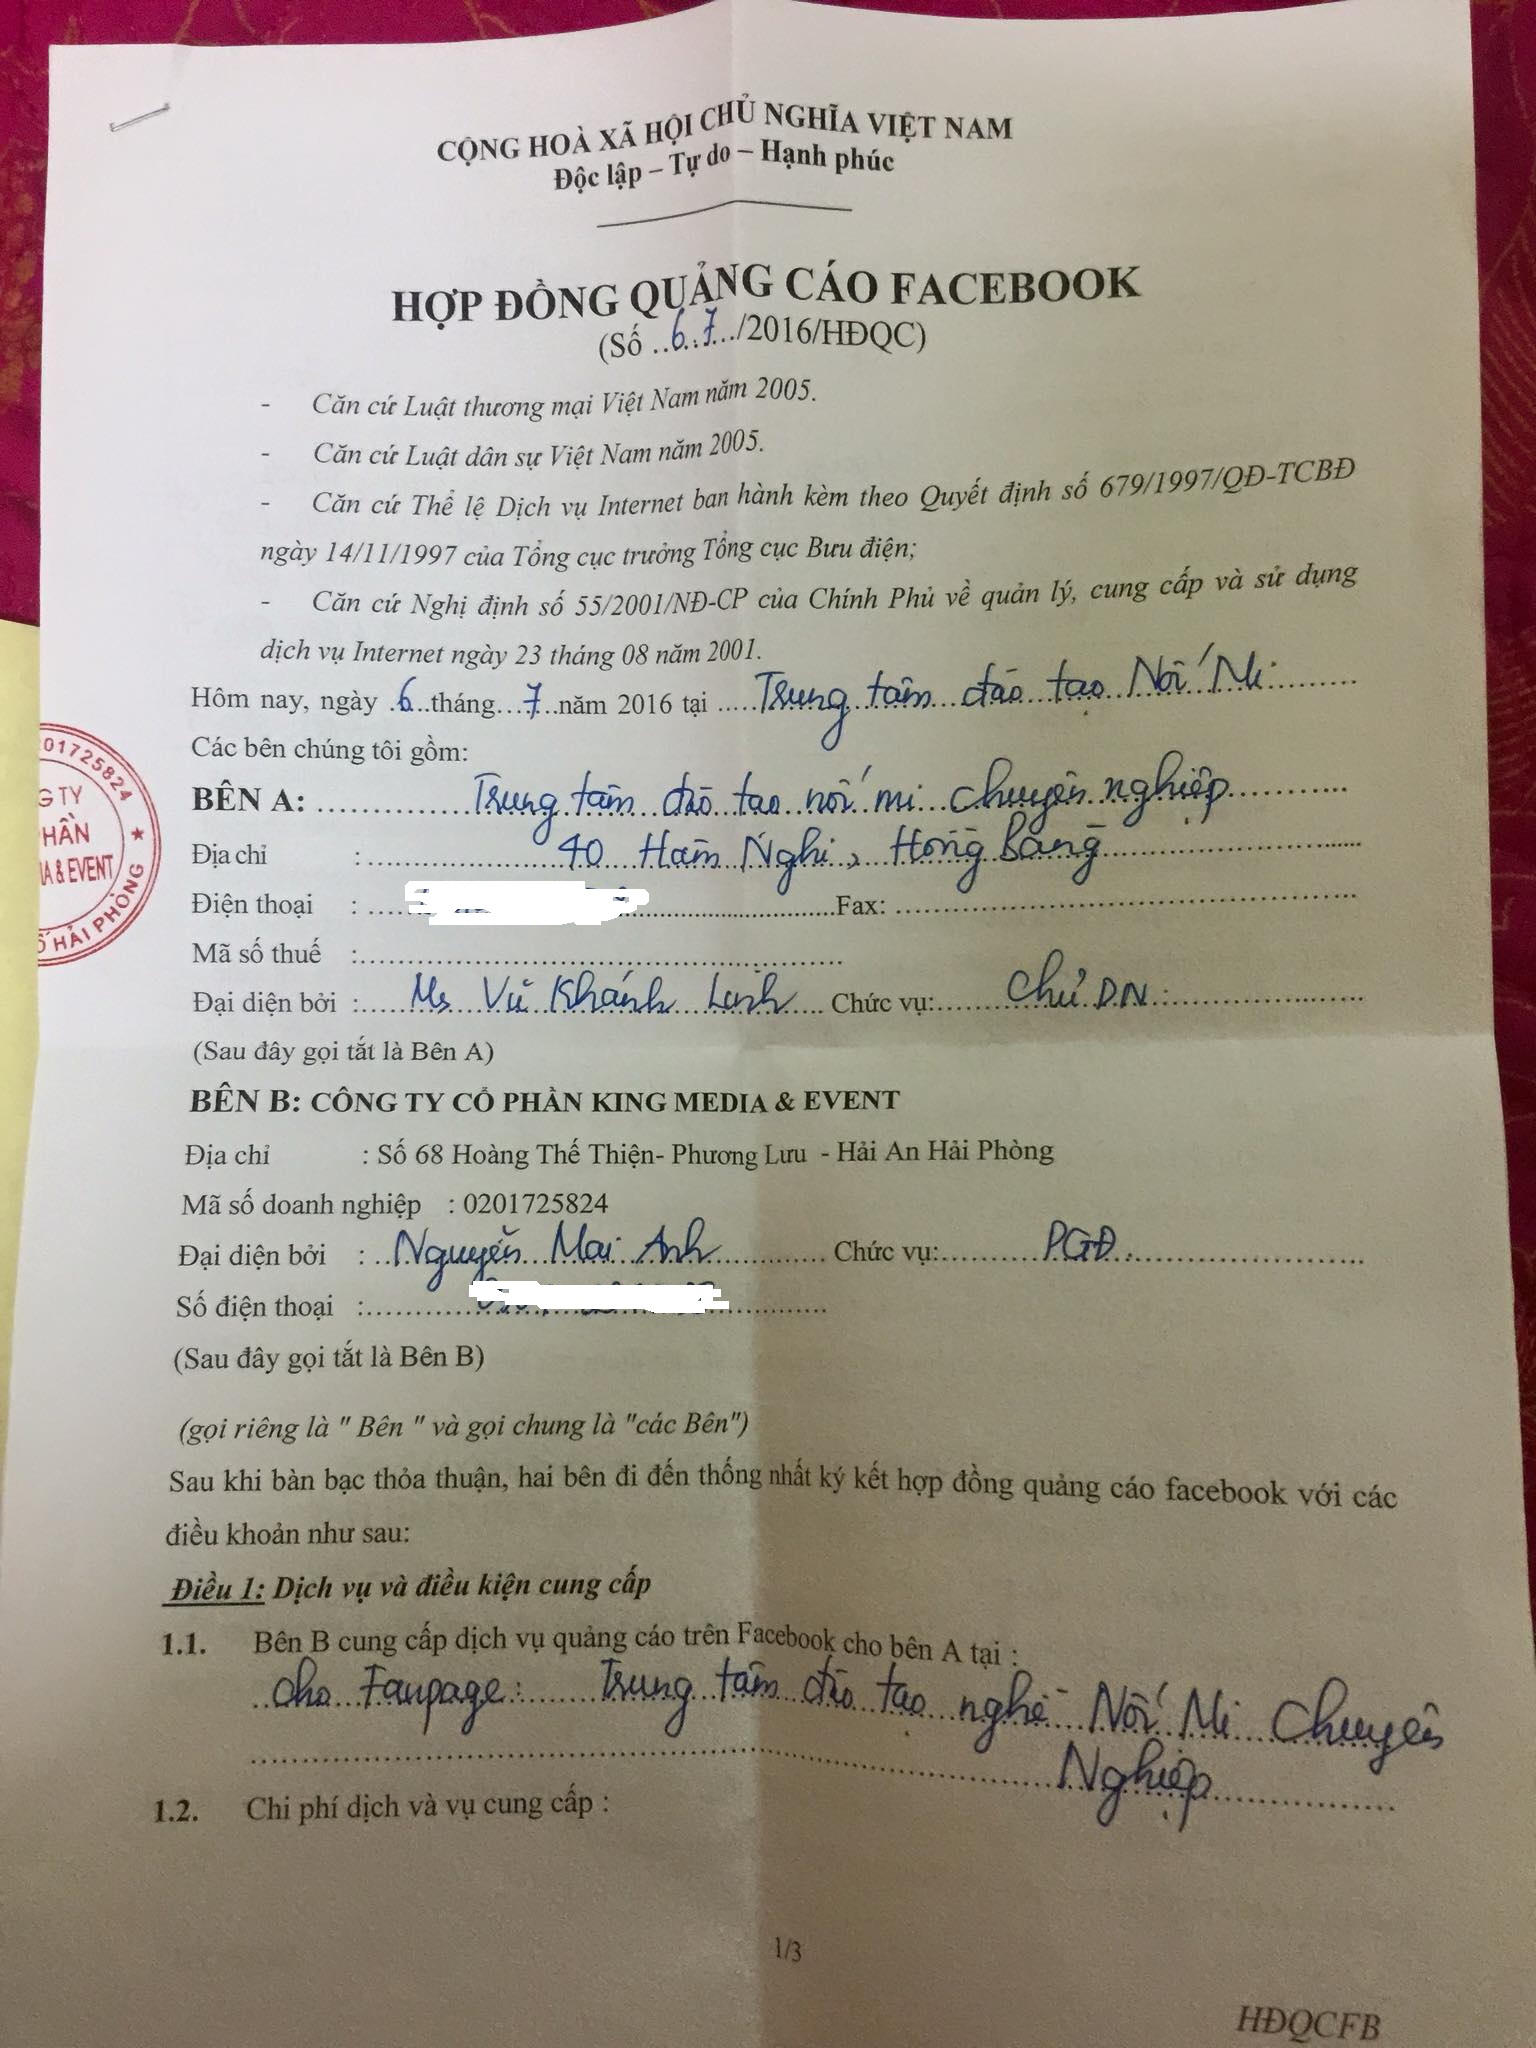 CỘNG HOÀ XÃ HỘI CHỦ NGHĨA VIỆT NAM
Độc lập – Tự do – Hạnh phúc
HỢP ĐỒNG QUẢNG CÁO FACEBOOK
(Số ..6.7.../2016/HĐQC)
- Căn cứ Luật thương mại Việt Nam năm 2005.
- Căn cứ Luật dân sự Việt Nam năm 2005.
- Căn cứ Thể lệ Dịch vụ Internet ban hành kèm theo Quyết định số 679/1997/QĐ-TCBĐ
ngày 14/11/1997 của Tổng cục trưởng Tổng cục Bưu điện;
- Căn cứ Nghị định số 55/2001/NĐ-CP của Chính Phủ về quản lý, cung cấp và sử dụng
dịch vụ Internet ngày 23 tháng 08 năm 2001.
Hôm nay, ngày 6 tháng 7 năm 2016 tại Trung tâm đào tạo Nối Mi
Các bên chúng tôi gồm:
BÊN A: Trung tâm đào tạo nối mi chuyên nghiệp
Địa chỉ : 40 Hàm Nghi, Hồng Bàng
Điện thoại : Fax:
Mã số thuế :
Đại diện bởi : Ms Vũ Khánh Linh Chức vụ: Chủ DN
(Sau đây gọi tắt là Bên A)
BÊN B: CÔNG TY CỔ PHẦN KING MEDIA & EVENT
Địa chỉ : Số 68 Hoàng Thế Thiện- Phương Lưu - Hải An Hải Phòng
Mã số doanh nghiệp : 0201725824
Đại diện bởi : Nguyễn Mai Anh Chức vụ: PGĐ
Số điện thoại :
(Sau đây gọi tắt là Bên B)
(gọi riêng là " Bên " và gọi chung là "các Bên")
Sau khi bàn bạc thỏa thuận, hai bên đi đến thống nhất ký kết hợp đồng quảng cáo facebook với các
điều khoản như sau:
Điều 1: Dịch vụ và điều kiện cung cấp
1.1. Bên B cung cấp dịch vụ quảng cáo trên Facebook cho bên A tại :
cho Fanpage: Trung tâm đào tạo nghề Nối Mi Chuyên
Nghiệp
1.2. Chi phí dịch và vụ cung cấp :
1/3
HĐQCFB
01725824
G TY
PHẦN
IA & EVENT
Ố HẢI PHÒNG